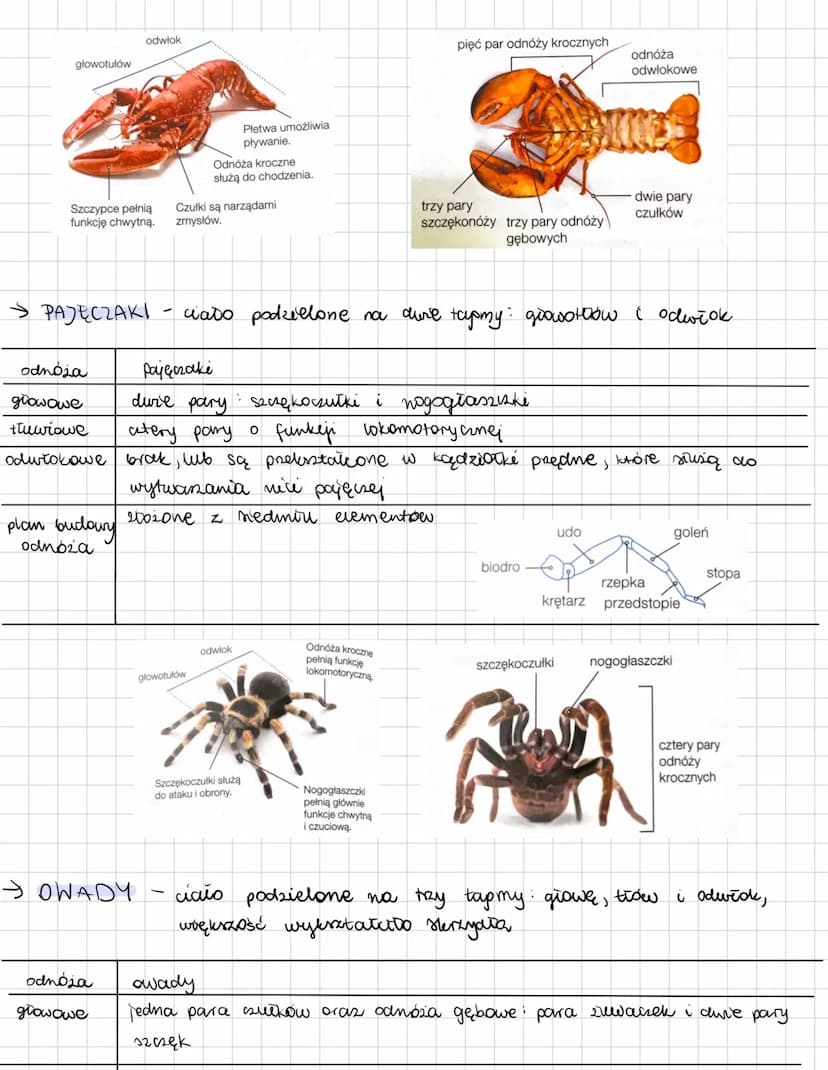 odwłok
głowotułów
Płetwa umożliwia
pływanie.
Odnóża kroczne
służą do chodzenia.
Szczypce pełnią
funkcję chwytną.
Czułki są narządami
zmysłów.
pięć par odnóży krocznych
odnóża
odwłokowe
trzy pary
szczękonóży
trzy pary odnóży
gębowych
dwie pary
czułków
→ PAJĘCZAKI - ciało podzielone na dwie tagmy: głowotłów i odwłok
odnóża pajęczaki
głowowe dwie pary: szczękoczułki i nogogłaszczki
tłuwiowe cztery pary o funkcji lokomotorycznej
odwłokowe brak, lub są przekształcone w kądziołki przędne, które służą do
wytwarzania nici pajęczej
plan budowy złożone z siedmiu elementów
odnóża
udo
goleń
biodro
stopa
rzepka
krętarz
przedstopie
odwłok
głowotułów
Odnóża kroczne
pełnią funkcję
lokomotoryczną.
Szczękoczułki służą
do ataku i obrony.
Nogogłaszczki
pełnią głównie
funkcje chwytną
i czuciową.
szczękoczułki
nogogłaszczki
cztery pary
odnóży
krocznych
→ OWADY - ciało podzielone na trzy tagmy: głowę, tłów i odwłok,
większość wykształciło skrzydła
odnóża owady
głowowe jedna para czułków oraz odnóża gębowe: para żuwaczek i dwie pary
szczęk